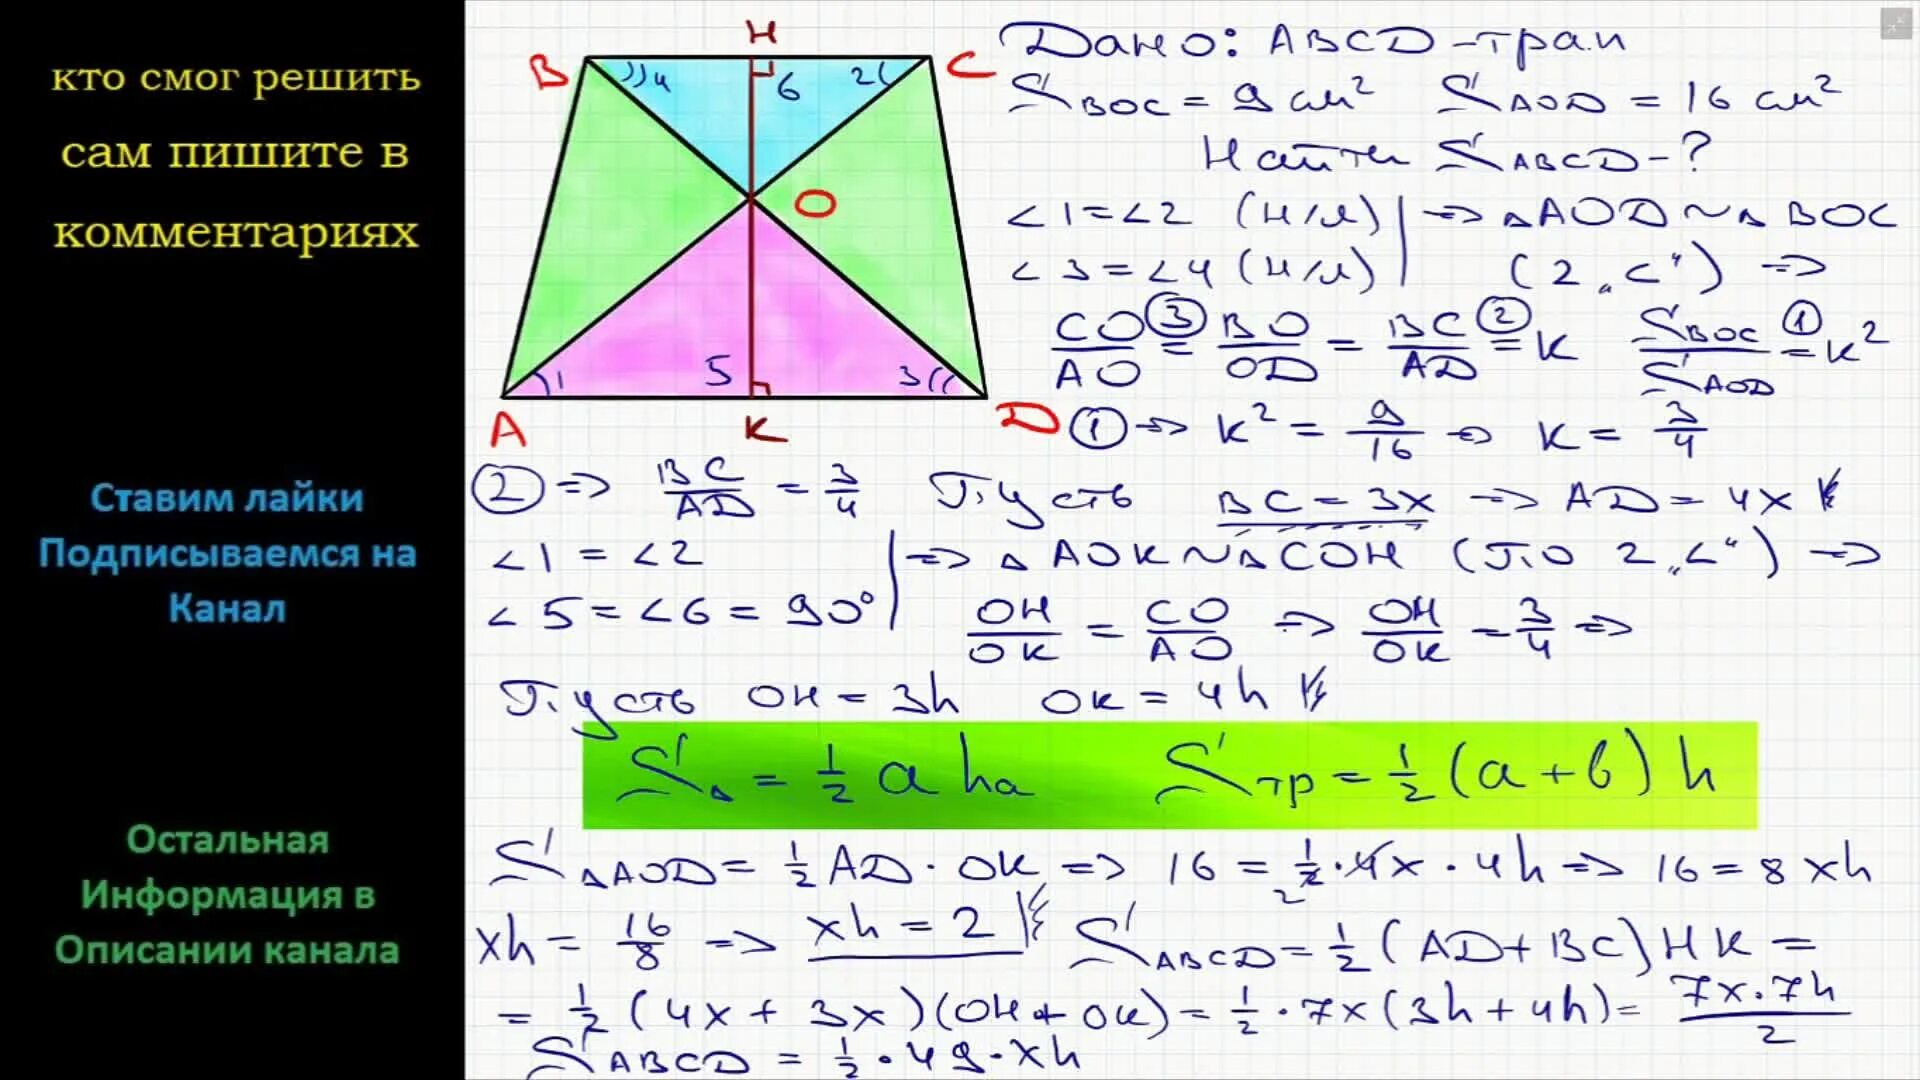 кто смог решить
сам пишите в
комментариях
Ставим лайки
Подписываемся на
Канал
Остальная
Информация в
Описании канала
H
B ))4 6 2( C
O
1 5 3((
A K D
Дано: ABCD -трап
S BOC = 9 см² S AOD = 16 см²
Найти S ABCD - ?
∠1 = ∠2 (н/л) | => △AOD ~ △BOC
∠3 = ∠4 (н/л) | (2 „∠“) =>
CO/AO =③ BO/OD = BC/AD =② K S BOC/S AOD =① K²
① => K² = 9/16 => K = 3/4
② => BC/AD = 3/4 Пусть BC = 3x => AD = 4x
∠1 = ∠2 | => △AOK ~ △COH (по 2 „∠“) =>
∠5 = ∠6 = 90° | OH/OK = CO/AO => OH/OK = 3/4 =>
Пусть OH = 3h OK = 4h
S△ = 1/2 a ha Sтр = 1/2 (a + b) h
S△AOD = 1/2 AD · OK => 16 = 1/2 · 4x · 4h => 16 = 8 xh
2
xh = 16/8 => xh = 2 S ABCD = 1/2 (AD + BC) HK =
= 1/2 (4x + 3x)(OH + OK) = 1/2 · 7x (3h + 4h) = 7x · 7h/2
S ABCD = 1/2 · 49 · xh